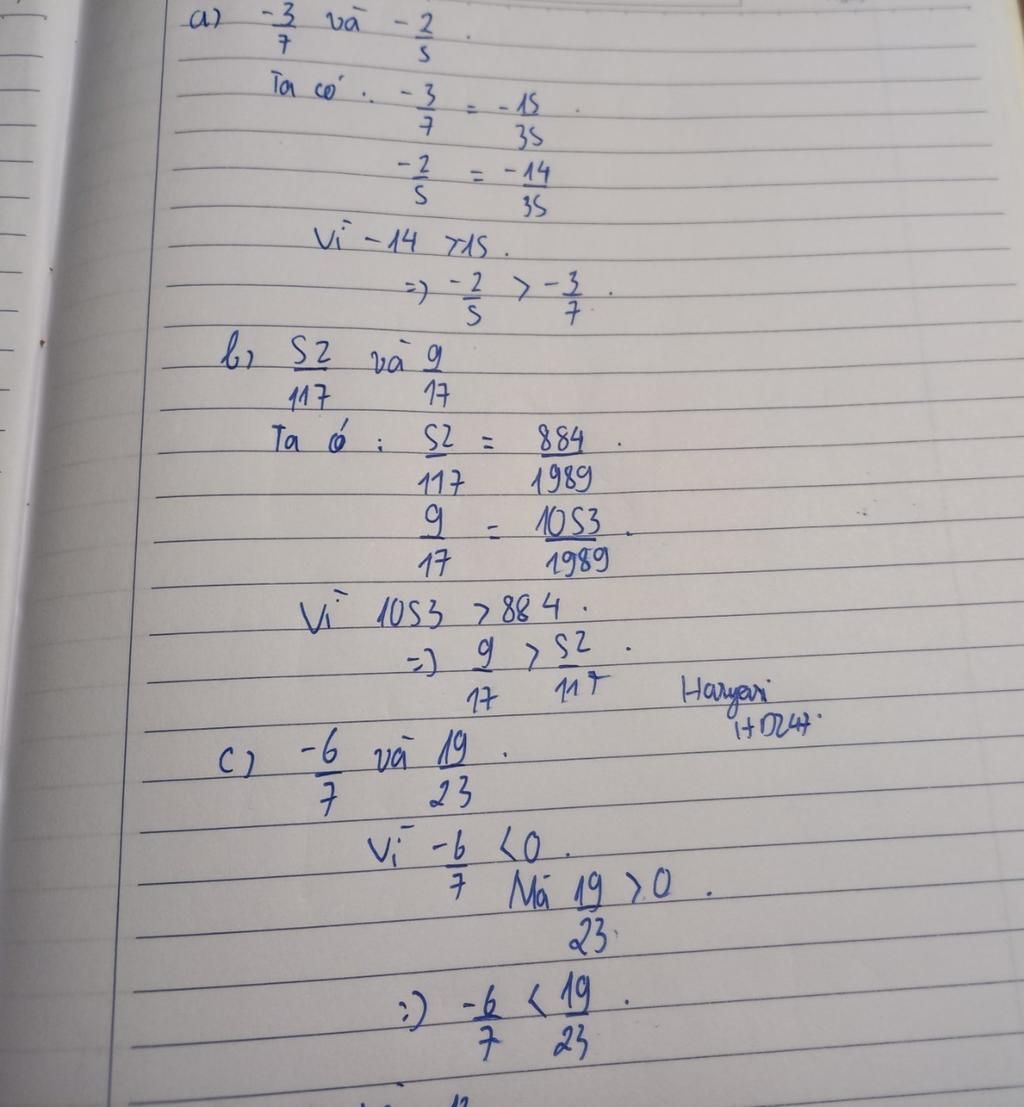 a) -3/7 và -2/5.
Ta có: -3/7 = -15/35.
-2/5 = -14/35
Vì -14 > 15.
=) -2/5 > -3/7.
b) 52/117 và 9/17
Ta có: 52/117 = 884/1989.
9/17 = 1053/1989.
Vì 1053 > 884.
=) 9/17 > 52/117.
c) -6/7 và 19/23.
Vì -6/7 < 0.
Mà 19/23 > 0.
=) -6/7 < 19/23.